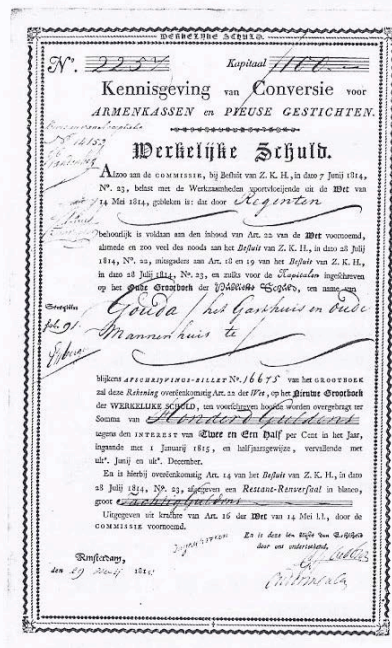 WERKELIJKE SCHULD.
N.º 2257 Kapitaal ƒ100
Kennisgeving van Conversie voor
ARMENKASSEN en PIEUSE GESTICHTEN.
Nº 14159
Werkelijke Schuld.
Alzoo aan de COMMISSIE, bij Besluit van Z. K. H., in dato 7 Junij 1814,
Nº. 23, belast met de Werkzaamheden voortvloeijende uit de Wet van
14 Mei 1814, gebleken is: dat door Regenten
behoorlijk is voldaan aan den inhoud van Art. 22 van de Wet voornoemd,
alsmede en zoo veel des noods aan het Besluit van Z. K. H., in dato 28 Julij
1814, Nº. 22, mitsgaders aan Art. 18 en 19 van het Besluit van Z. K. H.,
in dato 28 Julij 1814, Nº. 23, en zulks voor de Kapitalen ingeschreven
op het Oude Grootboek der Publieke Schuld, ten name van
Gouda / het Gasthuis en Oude
fol. 91.
Mannenhuis te /
blijkens AFSCHRIJVINGS-BILLET Nº. 16675 van het GROOTBOEK
zal deze Rekening overéénkomstig Art. 22 der Wet, op het Nieuwe Grootboek
der WERKELIJKE SCHULD, ten voorschreven hoofde worden overgebragt ter
Somma van Honderd Guldens
tegens den INTEREST van Twee en Een Half per Cent in het Jaar,
ingaande met 1 Januarij 1815, en halfjaargewijze, vervallende met
ultº. Junij en ultº. December.
En is hierbij overéénkomstig Art. 14 van het Besluit van Z. K. H., in dato
28 Julij 1814, Nº. 23, afgegeven een Restant-Renversaal in blanco,
groot Tachtig Guldens
Uitgegeven uit krachte van Art. 16 der Wet van 14 Mei l.l., door de
COMMISSIE voornoemd.
En is deze ten blijke van Echtheid
door ons onderteekend,
Amsterdam,
den 29 181